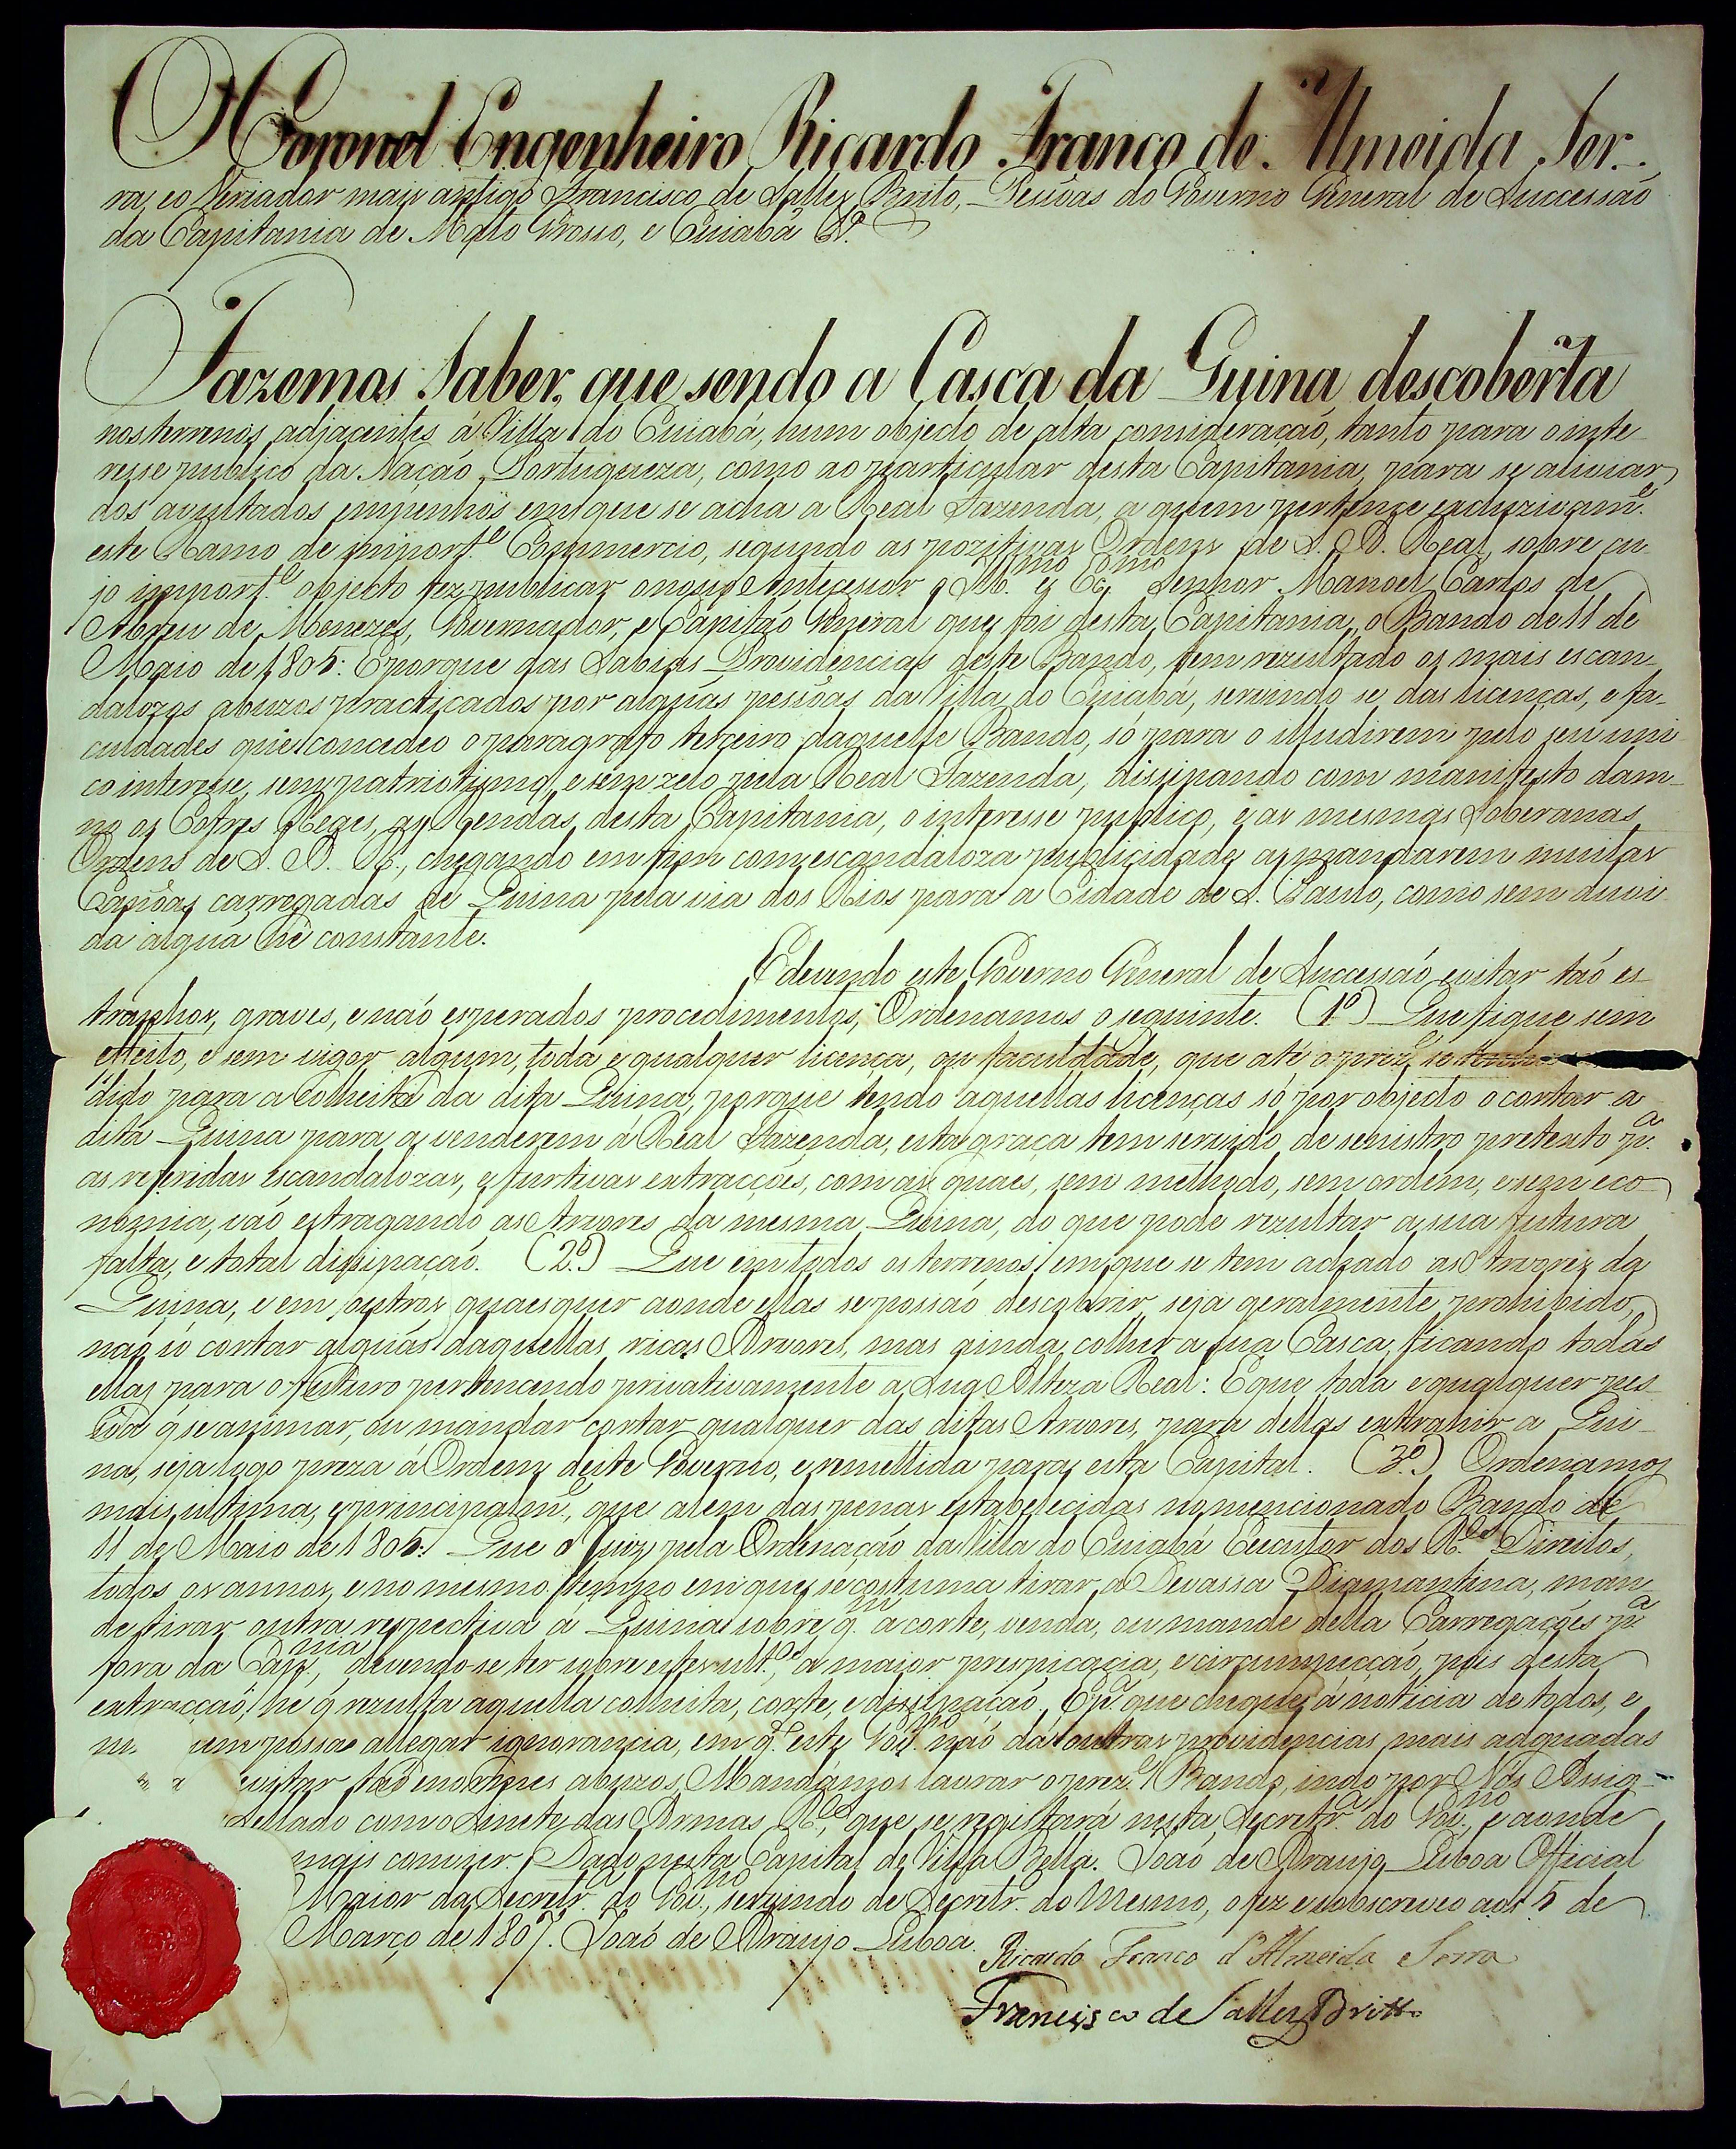 O Coronel Engenheiro Ricardo Franco de Almeida Ser-
ra, eo Veriador mais antigo Francisco de Salles Brito, Pessôas do Governo General de Successaõ
da Capitania de Mato Grosso, e Cuiabá &.ª
Fazemos Saber, que sendo a Casca da Quina descoberta
nos terrenos adjacentes á Villa do Cuiabá, hum objecto de alta consideraçaõ, tanto para o inte-
resse publico da Naçaõ Portugueza, como ao particular desta Capitania, para se aliviar
dos avultados empenhos em que se acha a Real Fazenda, a quem pertence excluzivam.ᵉ
este Ramo de import.ᵉ Commercio, segundo as pozitivas Ordens de S. A. Real, sobre cu-
jo import.ᵉ objecto fez publicar o nosso Antecessor o Ill.ᵐᵒ e Ex.ᵐᵒ Senhor Manoel Carlos de
Abreu de Menezes, Governador, e Capitaõ General que foi desta Capitania, o Bando de 11 de
Maio de 1805: E porque das Sabias Providencias deste Bando, tem rezultado os mais escan-
dalozos abuzos practicados por alguãs pessôas da Villa do Cuiabá, servindo se das licenças, e fa-
culdades que concedeo o paragrafo terceiro daquelle Bando, só para o illudirem pelo seu uni-
co interesse, sem patriotismo, e sem zelo pela Real Fazenda, dissipando com manifesto dam-
no os Cofres Regios, as Rendas desta Capitania, o interesse publico, e as mesmas Soberanas
Ordens de S. A. R., chegando em fim com escandaloza publicidade a mandarem muitas
Canôas carregadas de Quina pela via dos Rios para a Cidade de S. Paulo, como sem duvi-
da alguã hé constante.
E devendo este Governo General de Successaõ evitar taõ es-
tranhos, graves, e naõ esperados procedimentos, Ordenamos o seguinte. (1º) Que fique sem
effeito, e sem vigor algum, toda e qualquer licença, ou faculdade, que até o prez.ᵉ se tenha
dido para a Colheita da dita Quina, porque tendo aquellas licenças só por objecto o cortar a
dita Quina para a venderem á Real Fazenda, esta graça tem servido de senistro pretexto p.ª
as referidas escandalozas, e furtivas extracções, com as quaes, sem methodo, sem ordem, e sem eco-
nomia, vaõ estragando as Arvores da mesma Quina, do que pode rezultar a sua futura
falta, e total dissipaçaõ. (2º) Que em todos os terrenos em que se tem achado as Arvores da
Quina, e em outros quaesquer aonde ellas se possaõ descobrir seja geralmente prohibido,
naõ só cortar alguãs daquellas ricas Arvores, mas ainda colher a sua Casca, ficando todas
ellas para o futuro pertencendo privativamente a Sua Alteza Real: E que toda e qualquer pes-
sôa q̃ se animar, ou mandar cortar qualquer das ditas Arvores, para dellas extrahir a Qui-
na, seja logo preza á Ordem deste Governo, e remettida para esta Capital. (3º) Ordenamos
mais, ultima, e principalm.ᵉ, que alem das penas estabelecidas no mencionado Bando de
11 de Maio de 1805: Que o Juiz pela Ordinaçaõ da Villa do Cuiabá Executor dos R.ᵉˢ Direitos,
todos os annos, e no mesmo tempo em que se costuma tirar a Devassa Diamantina, man-
de tirar outra respectiva á Quina sobre q.ᵐ a corte, venda, ou mande della Carregações p.ª
fora da Cap.ⁿⁱᵃ, devendo-se ter sobre este ult.ᵒ a maior prespicacia, e circumspecçaõ, pois desta
extracçaõ he q̃ rezulta aquella colheita, corte, e dissipaçaõ. E p.ª que chegue á noticia de todos, e
possa allegar ignorancia, em q.ᵗᵒ este Gov.ⁿᵒ naõ dá outras providencias mais adquadas
evitar taõ enormes abuzos, Mandamos lavrar o prez.ᵉ Bando, indo por Nós Assig-
Sellado com o Sinete das Armas R.ᵉˢ, que se registará nesta Secretr.ª do Gov.ⁿᵒ, e aonde
mais convier. Dado nesta Capital de Villa Bella. Joaõ de Araujo Lisboa Official
Maior da Secretr.ª do Gov.ⁿᵒ, servindo de Secretr.º do Mesmo, o fez e subscreveo aos 5 de
Março de 1807. Joaõ de Araujo Lisboa.
Ricardo Franco d'Almeida Serra
Francisco de Salles Britto